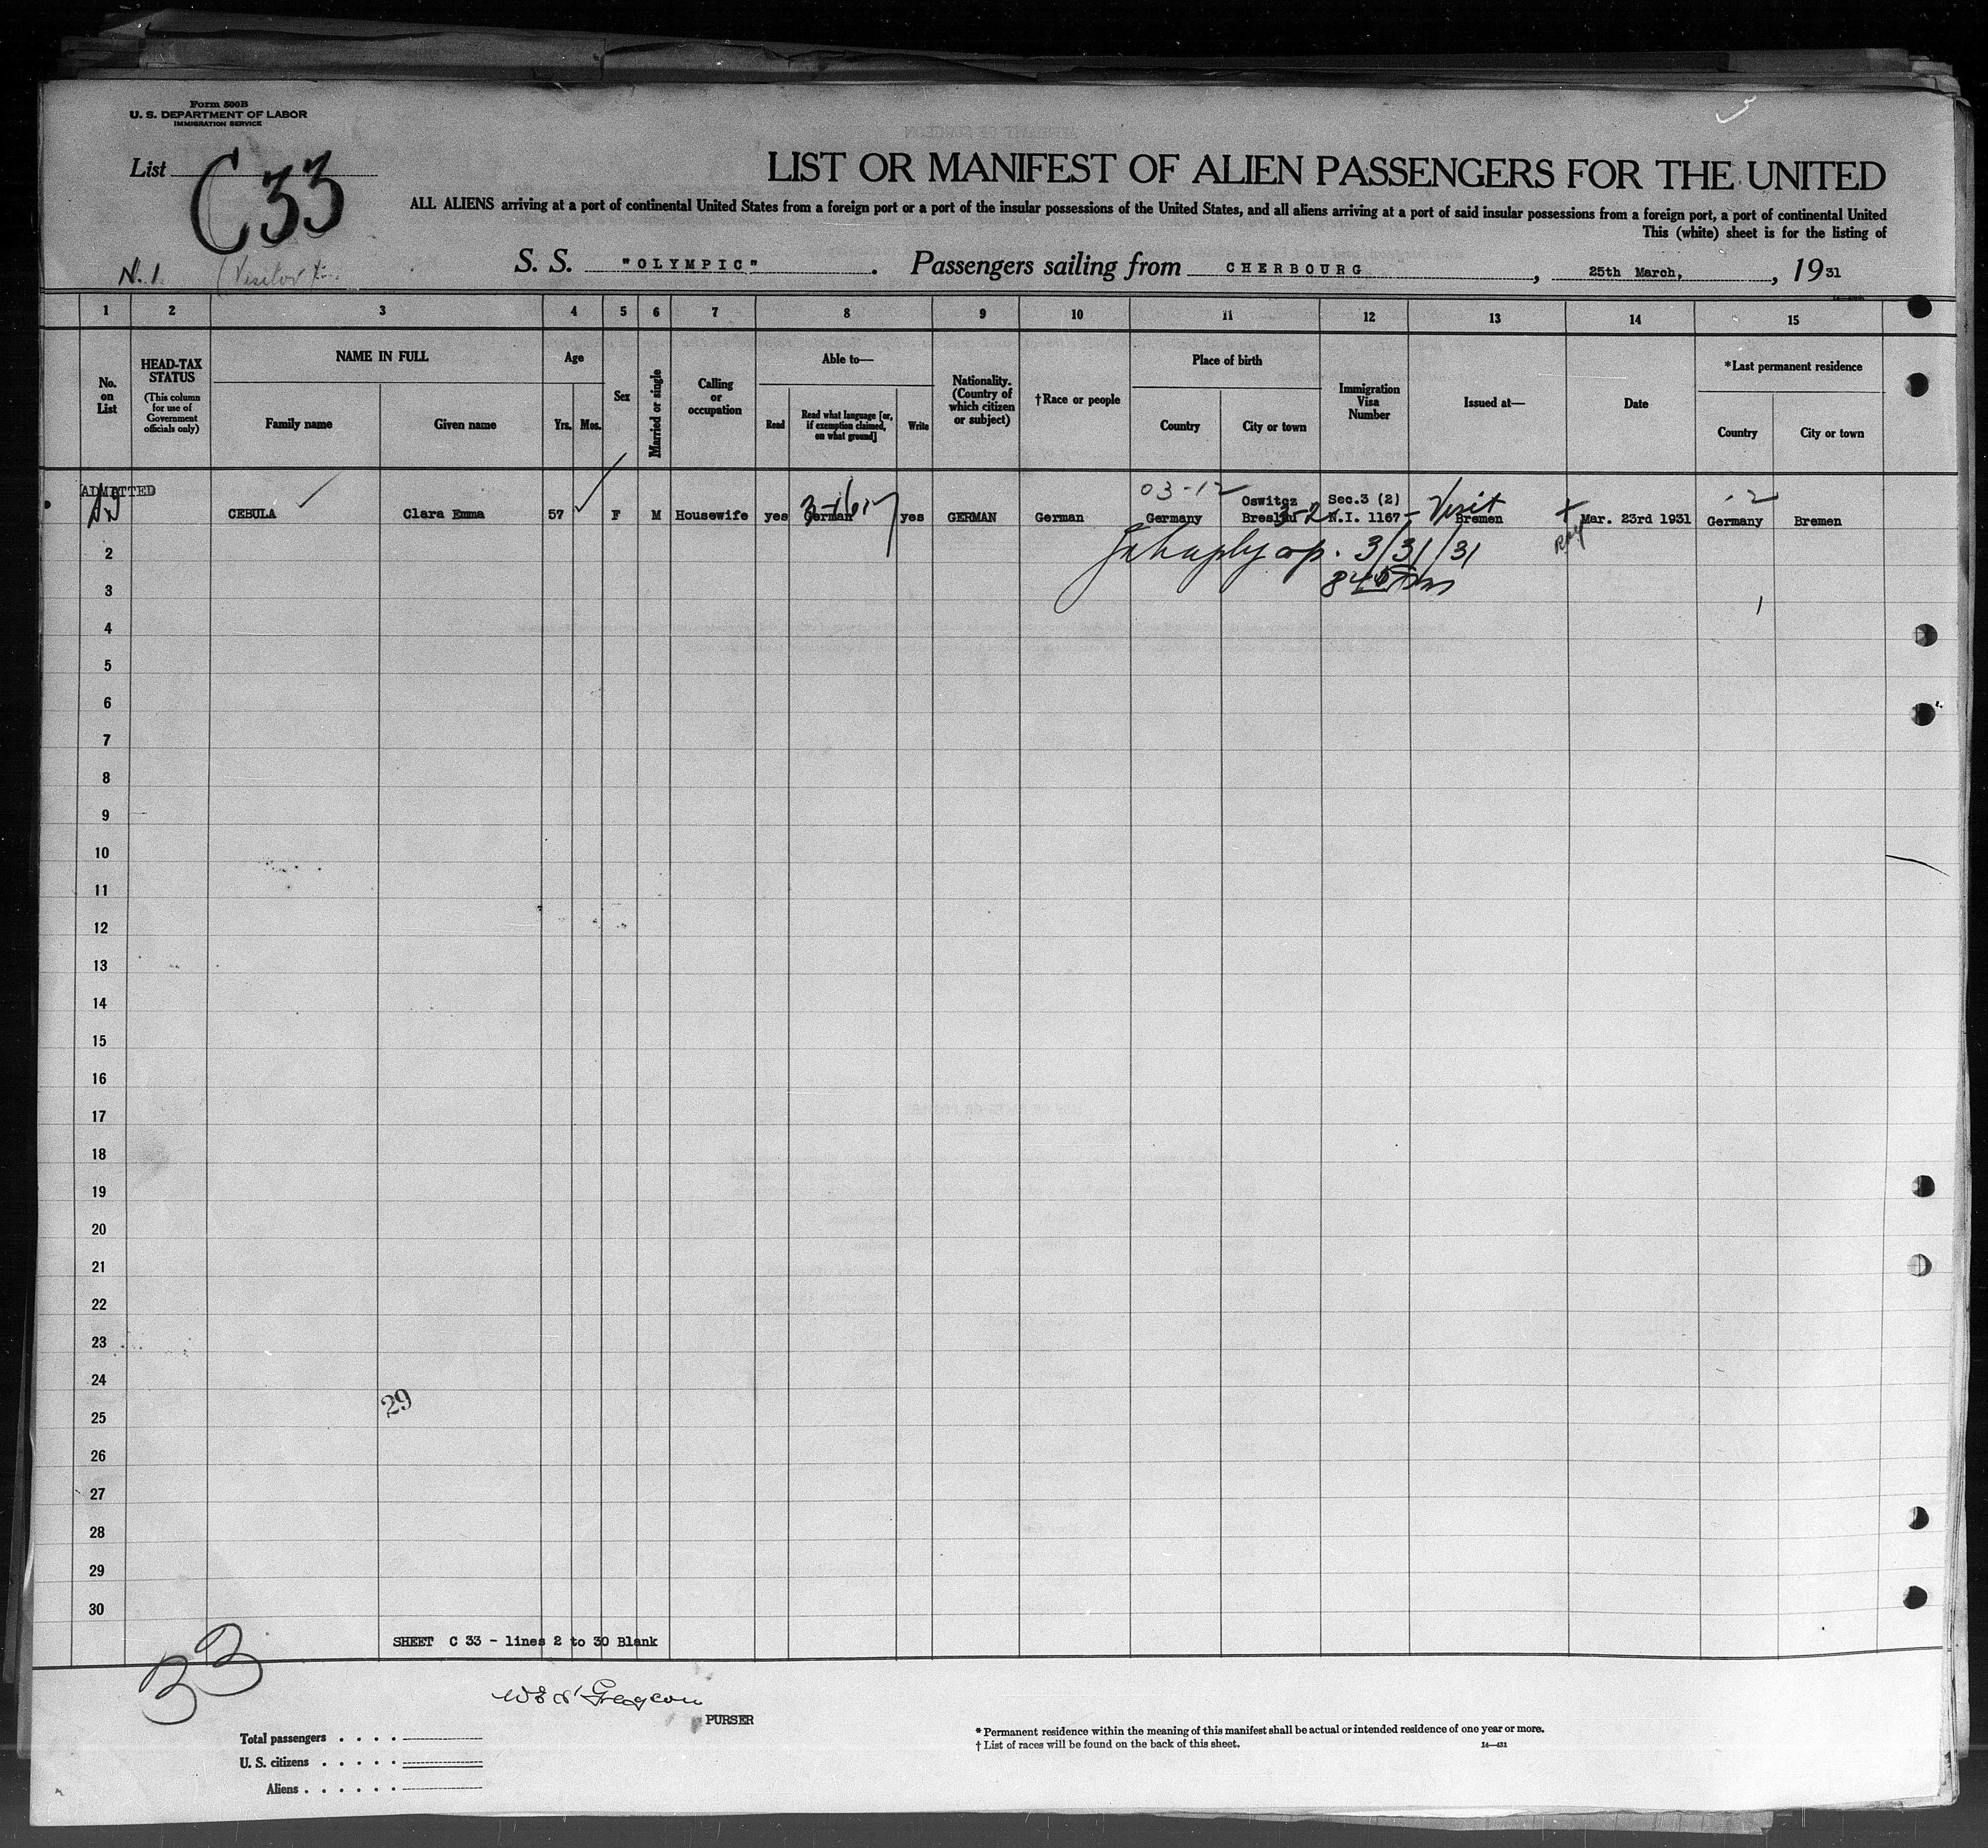 Form 500B
U. S. DEPARTMENT OF LABOR
IMMIGRATION SERVICE
List C 33
LIST OR MANIFEST OF ALIEN PASSENGERS FOR THE UNITED
ALL ALIENS arriving at a port of continental United States from a foreign port or a port of the insular possessions of the United States, and all aliens arriving at a port of said insular possessions from a foreign port, a port of continental United
This (white) sheet is for the listing of
S. S. "OLYMPIC". Passengers sailing from CHERBOURG, 25th March, , 1931
1 2 3 4 5 6 7 8 9 10 11 12 13 14 15
No. on List
HEAD-TAX STATUS
(This column for use of Government officials only)
NAME IN FULL
Family name
Given name
Age
Yrs. Mos.
Sex
Married or single
Calling or occupation
Able to—
Read
Read what language [or, if exemption claimed, on what ground]
Write
Nationality. (Country of which citizen or subject)
†Race or people
Place of birth
Country
City or town
Immigration Visa Number
Issued at—
Date
*Last permanent residence
Country
City or town
ADMITTED
03-12 Oswitcz Sec.3 (2) Visit
CEBULA Clara Emma 57 F M Housewife yes German yes GERMAN German Germany Breslau N.I. 1167 Bremen Mar. 23rd 1931 Germany Bremen
2
3/31/31
3
4
5
6
7
8
9
10
11
12
13
14
15
16
17
18
19
20
21
22
23
24
29
25
26
27
28
29
30
SHEET C 33 - lines 2 to 30 Blank
33
PURSER
Total passengers . . . .
U. S. citizens . . . . .
Aliens . . . . . .
* Permanent residence within the meaning of this manifest shall be actual or intended residence of one year or more.
† List of races will be found on the back of this sheet.
14—431